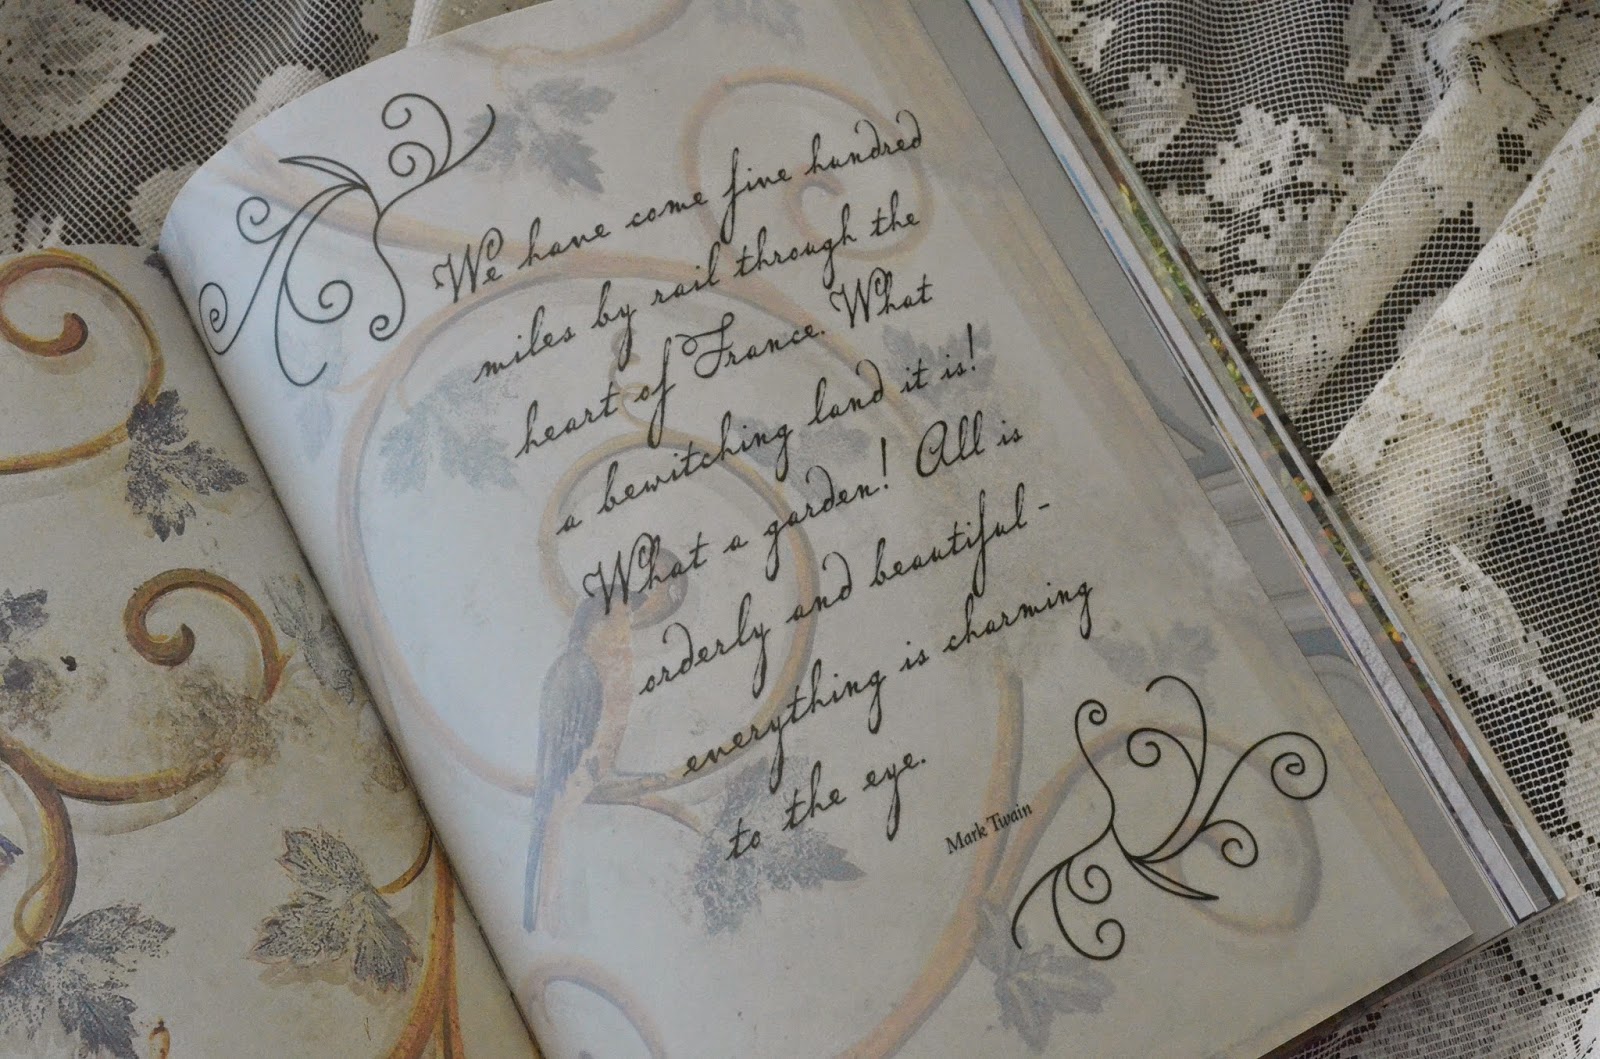 We have come five hundred
miles by rail through the
heart of France. What
a bewitching land it is!
What a garden! All is
orderly and beautiful -
everything is charming
to the eye.
Mark Twain